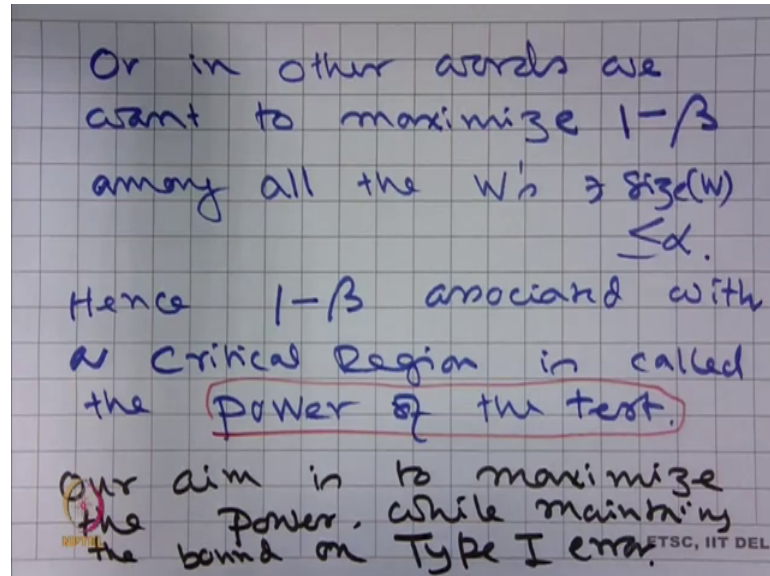 Or in other words we
want to maximize 1-β
among all the W's ∋ size(W)
≤α.
Hence 1-β associated with
a Critical Region is called
the power of the test.
Our aim is to maximize
the power. while maintaining
the bound on Type I error.
NPTEL
ETSC, IIT DEL